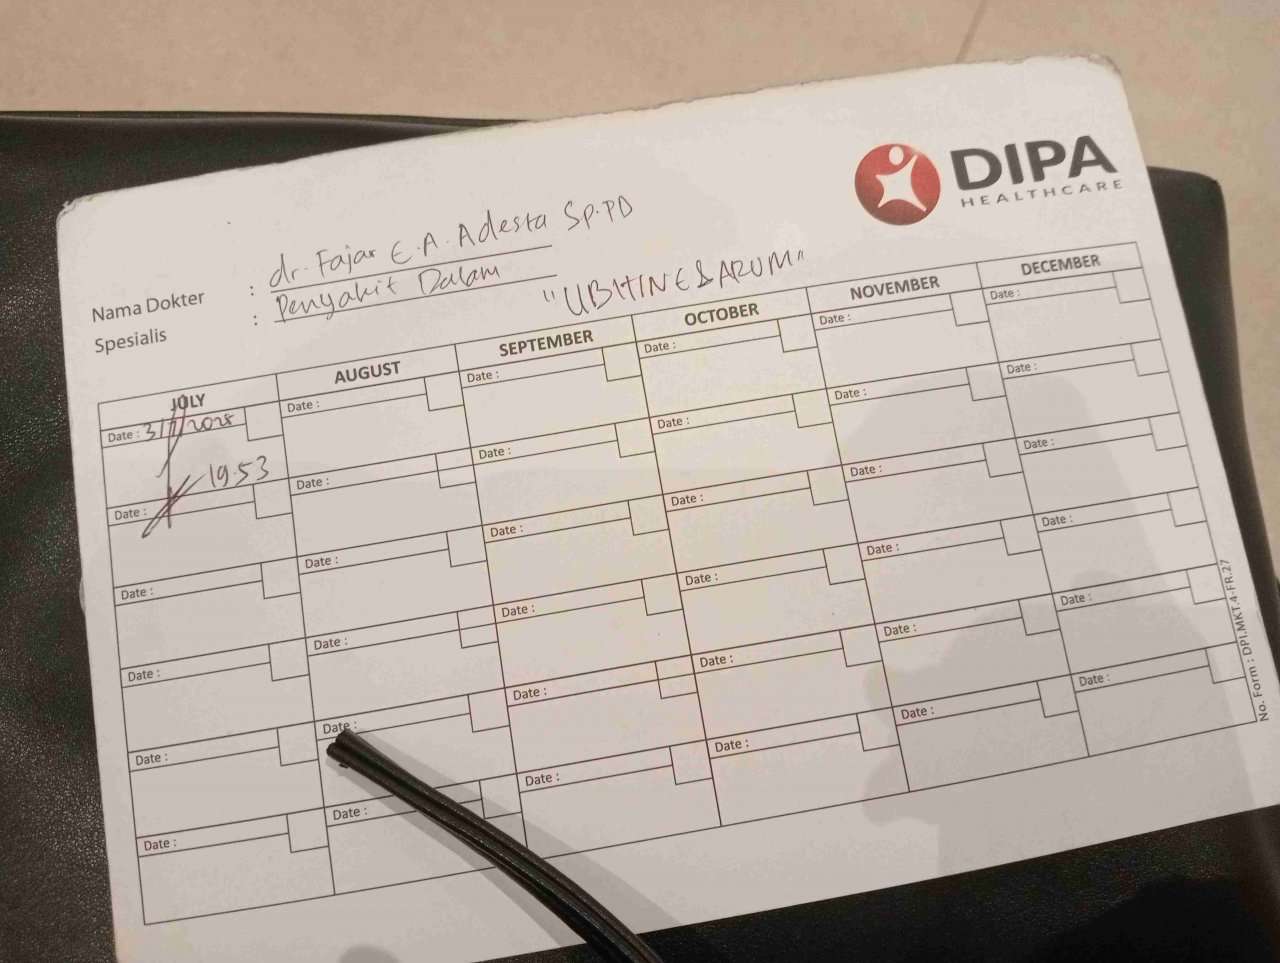 DIPA
HEALTHCARE
Nama Dokter : dr. Fajar E.A. Adesta Sp.PD
Spesialis : Penyakit Dalam
JULY AUGUST SEPTEMBER OCTOBER NOVEMBER DECEMBER
Date : Date : Date : Date : Date : Date :
19.53
Date : Date : Date : Date : Date : Date :
Date : Date : Date : Date : Date : Date :
Date : Date : Date : Date : Date : Date :
Date : Date : Date : Date : Date : Date :
Date : Date : Date : Date : Date : Date :
No. Form : DPI.MKT.4-FR.27